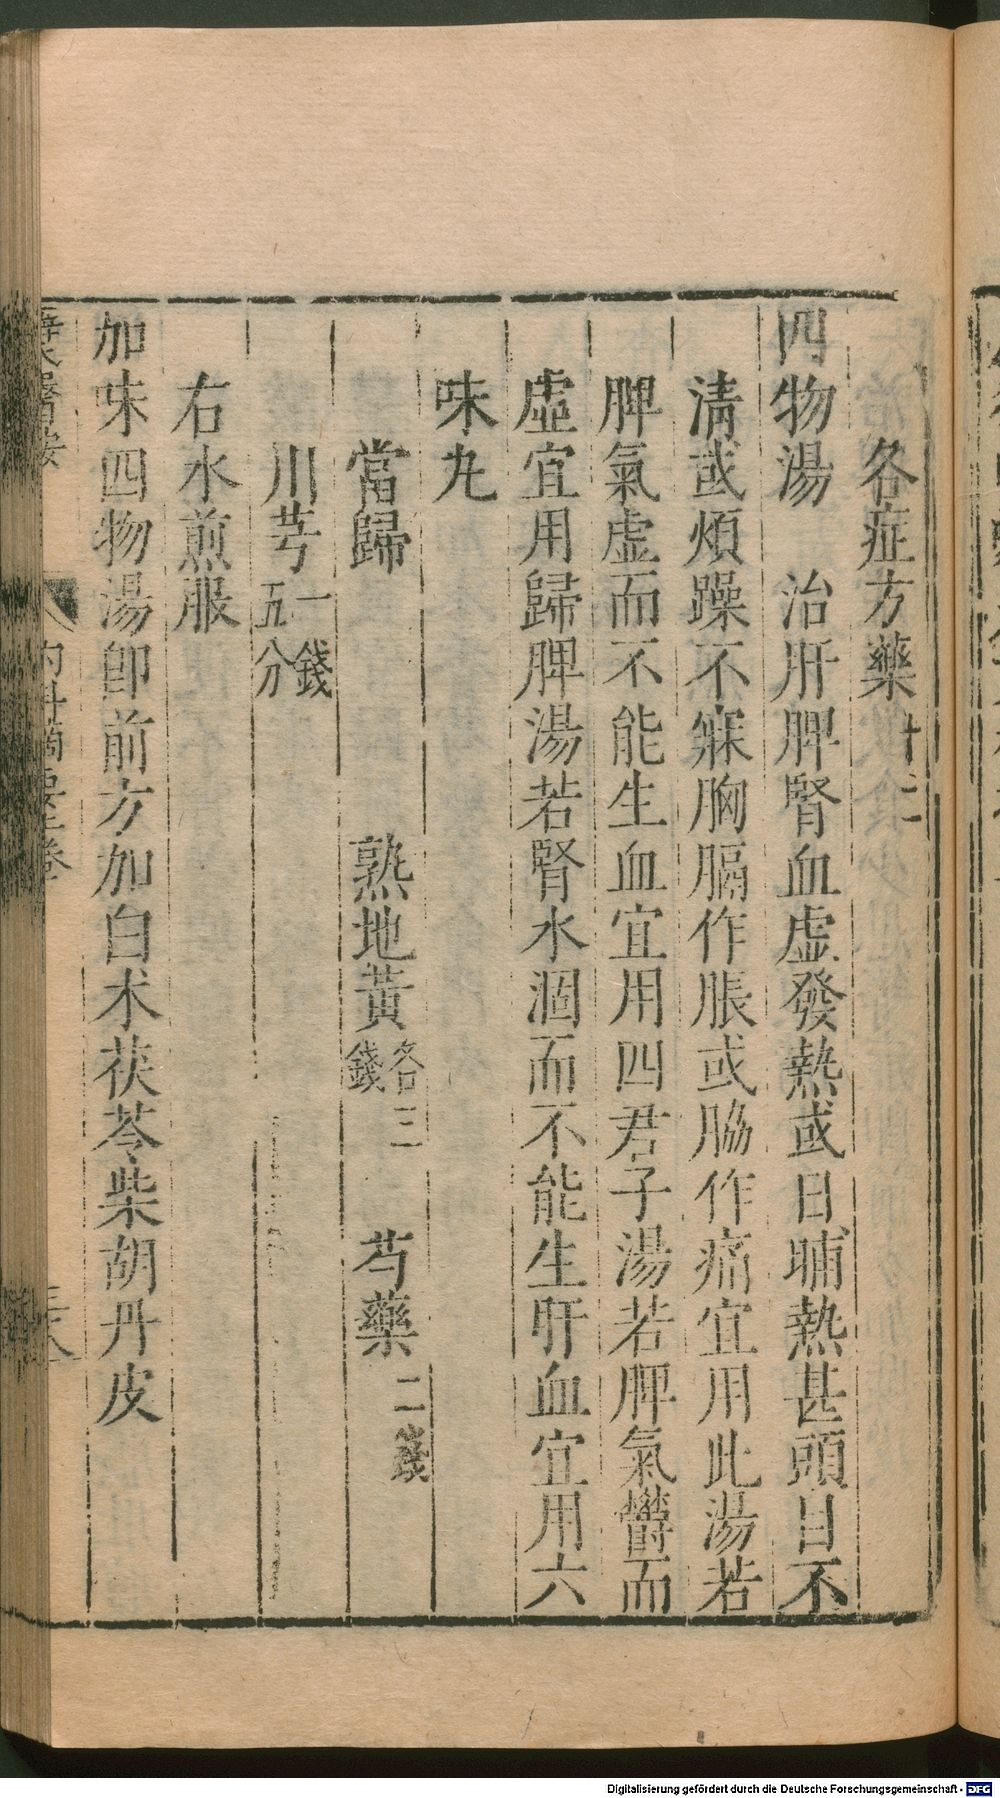 各症方藥十二
四物湯　治肝脾腎血虛發熱或日晡熱甚頭目不
清或煩躁不寐胸膈作脹或脇作痛宜用此湯若
脾氣虛而不能生血宜用四君子湯若脾氣鬱而
虛宜用歸脾湯若腎水涸而不能生肝血宜用六
味丸
當歸　熟地黃各三錢　芍藥二錢
川芎一錢五分
右水煎服
加味四物湯卽前方加白术茯苓柴胡丹皮
Digitalisierung gefördert durch die Deutsche Forschungsgemeinschaft - DFG